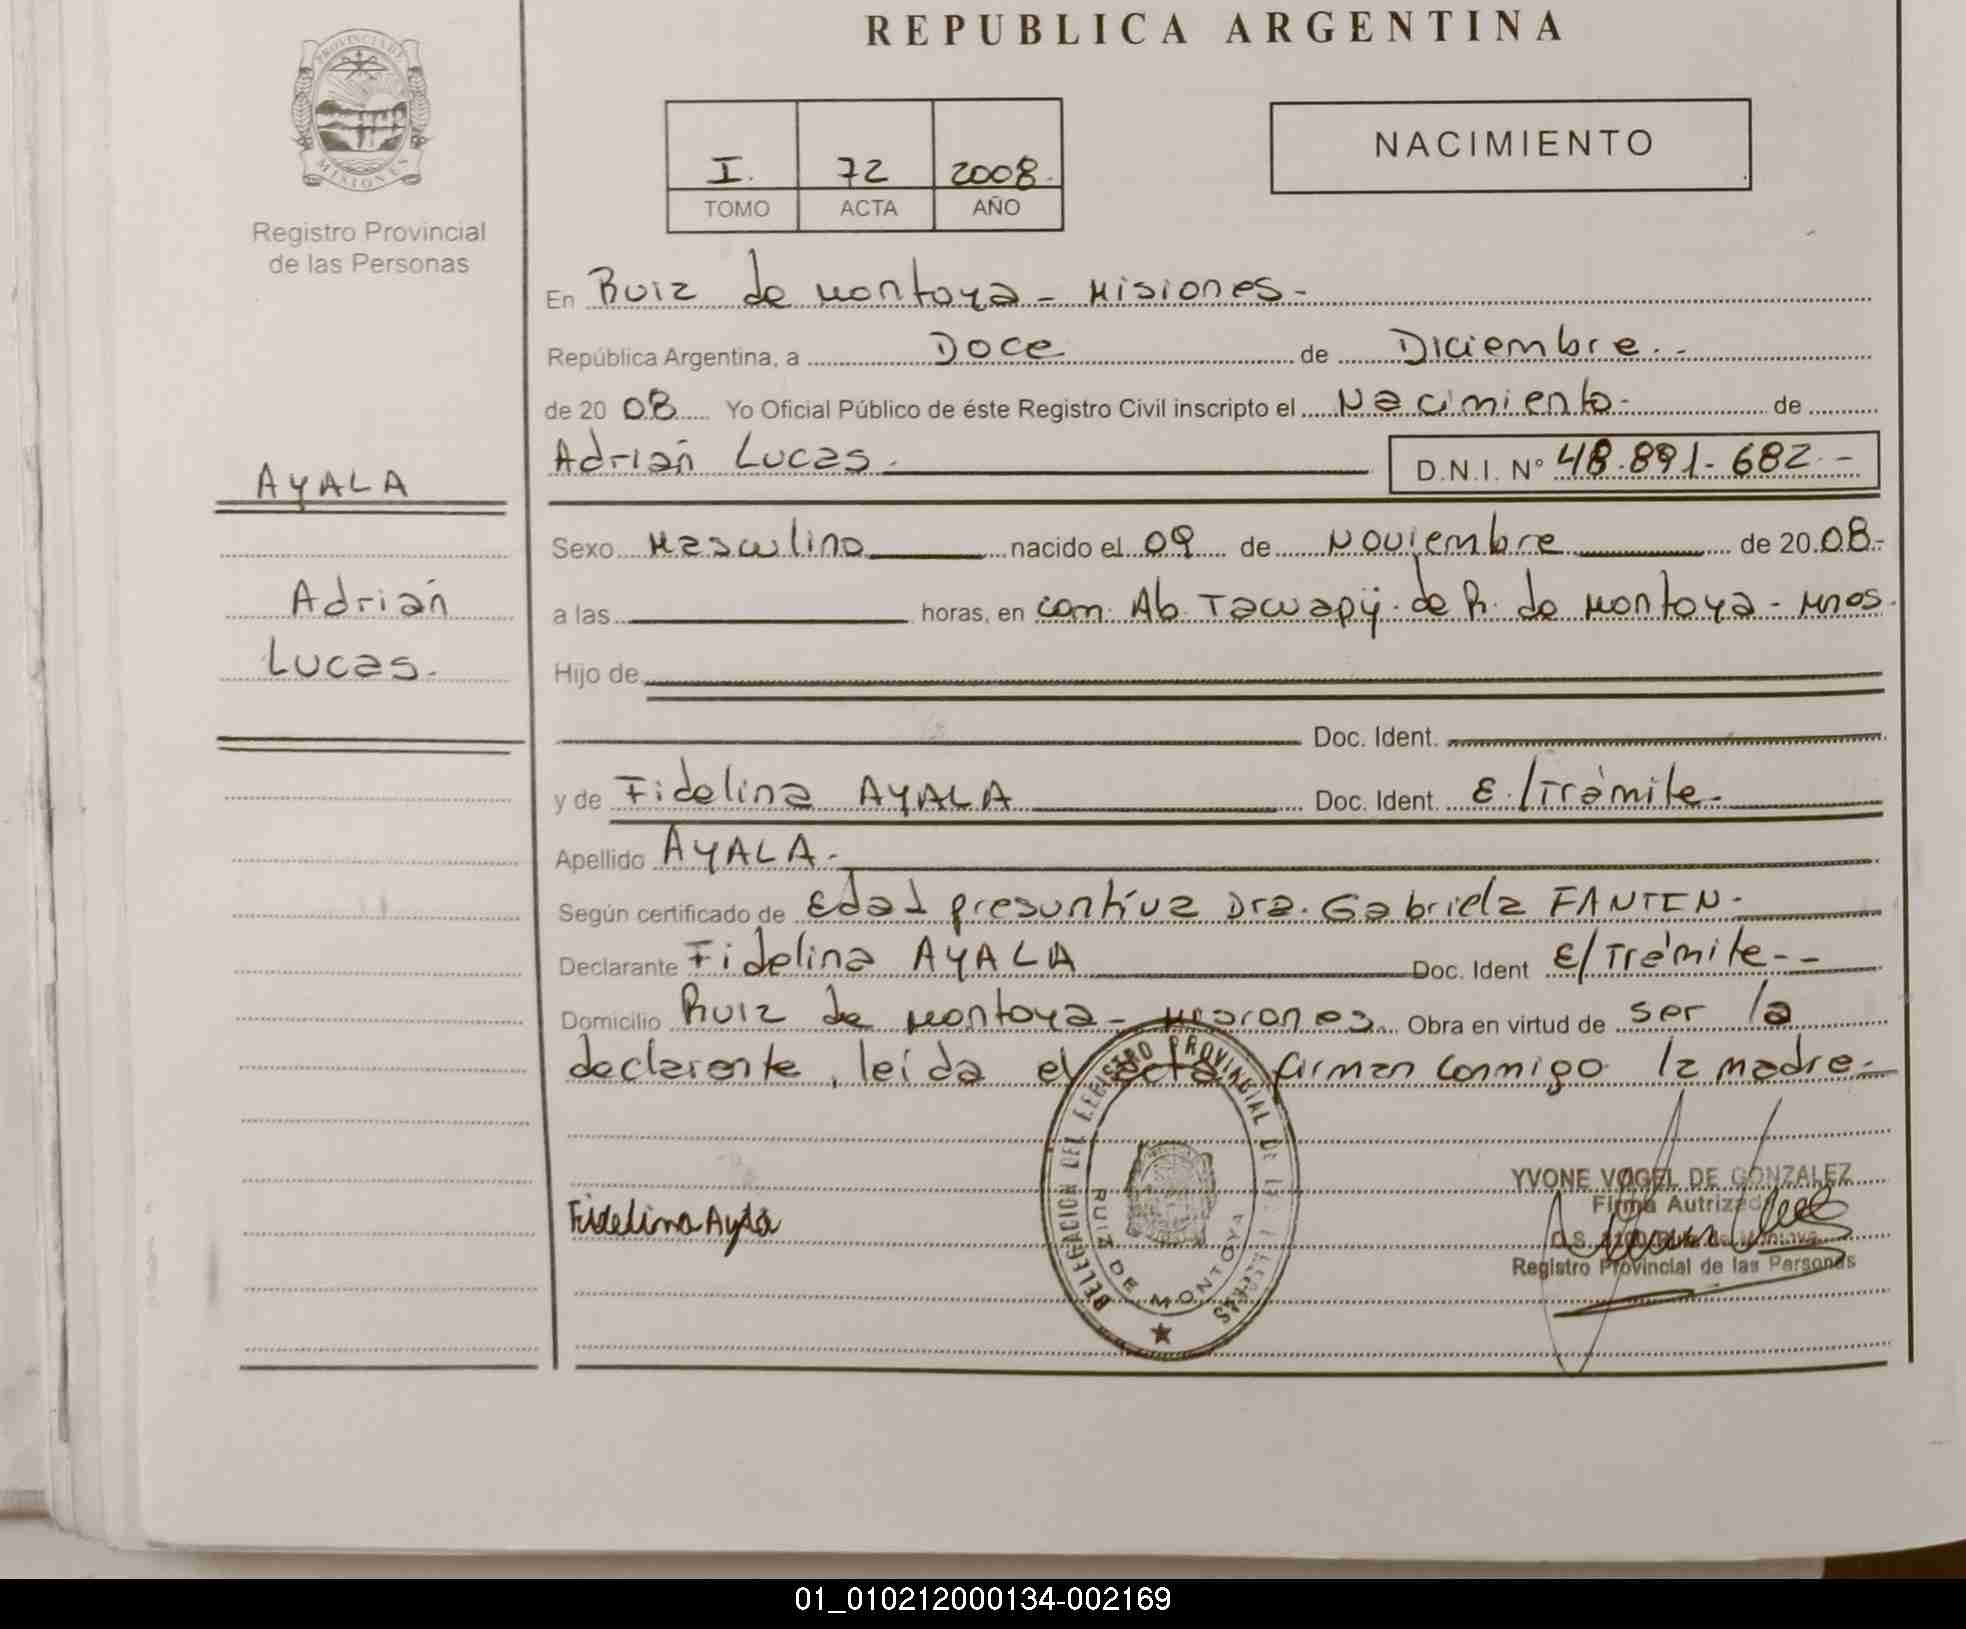 REPUBLICA ARGENTINA
PROVINCIA DE
MISIONES
Registro Provincial
de las Personas
I. 72 2008.
TOMO ACTA AÑO
NACIMIENTO
En Ruiz de Montoya - Misiones -
República Argentina, a Doce de Diciembre. -
de 20 08 Yo Oficial Público de éste Registro Civil inscripto el Nacimiento - de
Adrián Lucas. D.N.I. N° 48.891.682.-
AYALA
Adrián
Lucas.
Sexo Masculino nacido el 09 de Noviembre de 20 08.-
a las horas, en com. Ab. Tacuapÿ. de R. de Montoya - Mnes.
Hijo de
Doc. Ident.
y de Fidelina AYALA Doc. Ident. E./Trámite.
Apellido AYALA.-
Según certificado de Edad presuntiva Dra. Gabriela FANTEN.
Declarante Fidelina AYALA Doc. Ident E/Trámite--
Domicilio Ruiz de Montoya - Misiones. Obra en virtud de ser la
declarante, leída el acta, firman conmigo la madre.-
Fidelina Ayala
DELEGACION DEL REGISTRO PROVINCIAL DE LAS PERSONAS
RUIZ DE MONTOYA
YVONE VOGEL DE GONZALEZ
Firma Autrizada
Registro Provincial de las Personas
01_010212000134-002169